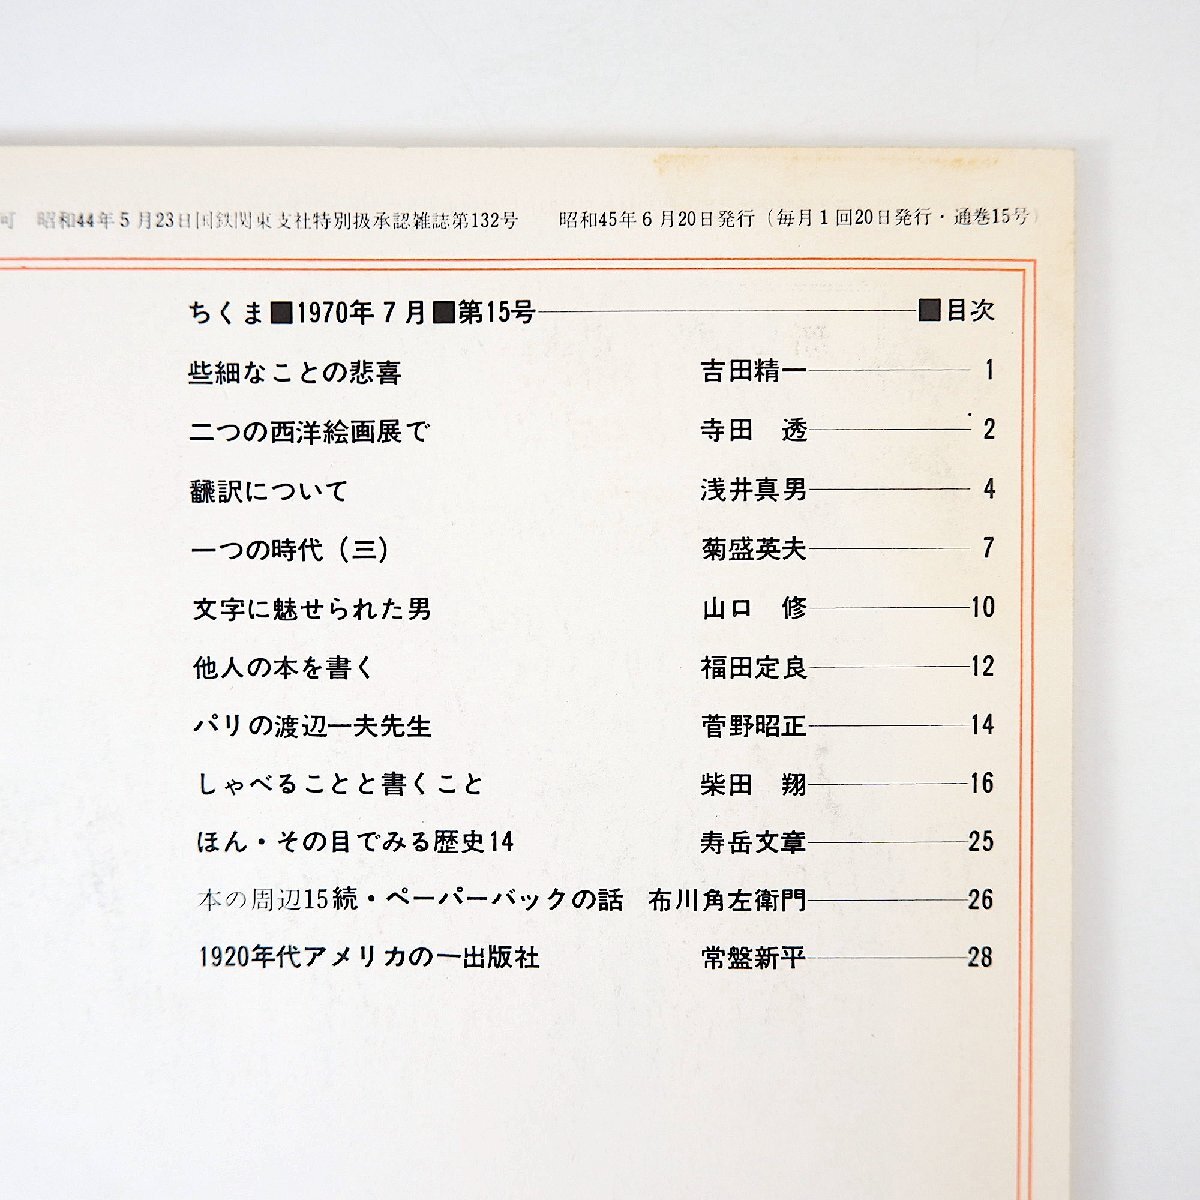 可 昭和44年5月23日国鉄関東支社特別扱承認雑誌第132号 昭和45年6月20日発行（毎月1回20日発行・通巻15号）
ちくま■1970年7月■第15号 ■目次
些細なことの悲喜 吉田精一 1
二つの西洋絵画展で 寺田 透 2
翻訳について 浅井真男 4
一つの時代（三） 菊盛英夫 7
文字に魅せられた男 山口 修 10
他人の本を書く 福田定良 12
パリの渡辺一夫先生 菅野昭正 14
しゃべることと書くこと 柴田 翔 16
ほん・その目でみる歴史14 寿岳文章 25
本の周辺15続・ペーパーバックの話 布川角左衛門 26
1920年代アメリカの一出版社 常盤新平 28